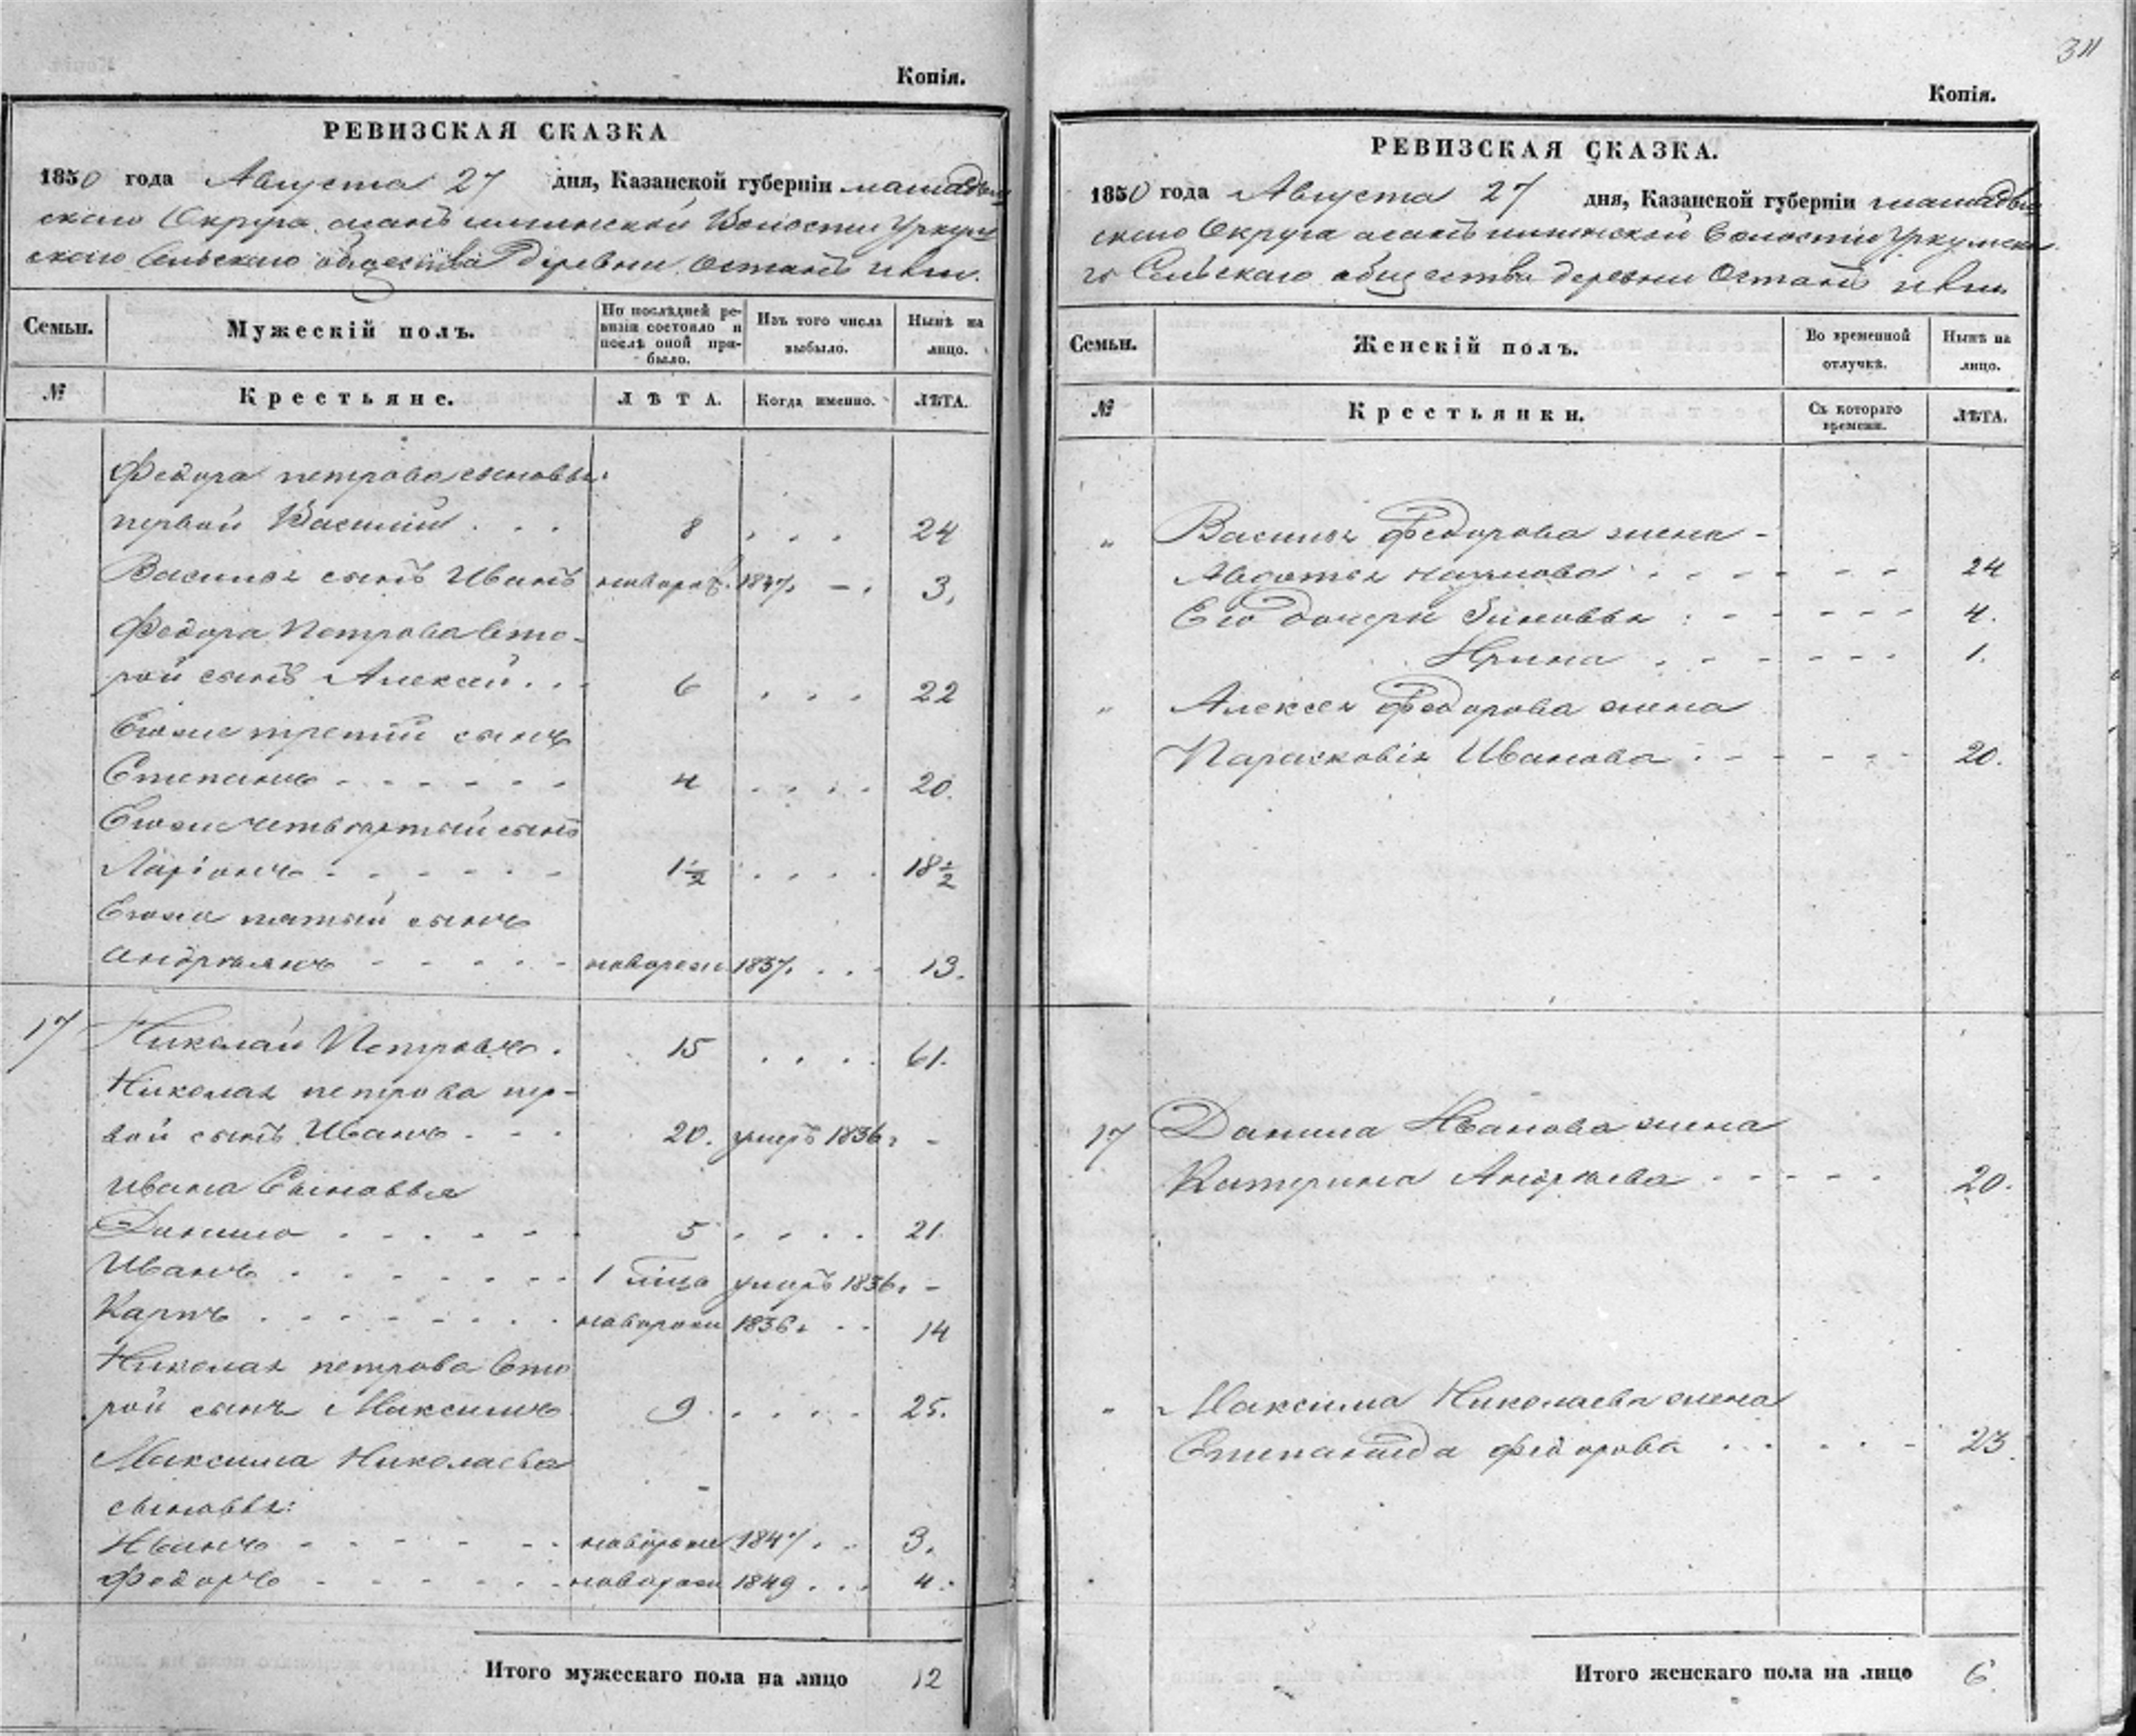 Копія.
РЕВИЗСКАЯ СКАЗКА
1850 года Августа 27 дня, Казанской губерніи мамадыш
скаго Округа Волости Уркум
скаго Сельскаго общества Деревни Остань
Семьи. Мужескій полъ. По послѣдней ревизіи состояло и послѣ оной прибыло. Изъ того числа выбыло. Нынѣ на лицо.
№ Крестьяне. ЛѢТА. Когда именно. ЛѢТА.
Федора петрова сыновья:
первой Василий . . . 8 . . . 24
Василья сынъ Иванъ новорож. 1847. - . 3.
Федора Петрова вто-
рой сынъ Алексей . . . 6 . . . 22
Егоже третий сынъ
Степанъ - - - - - - 4 . . . . 20.
Егоже четвертый сынъ
Ларіонъ - - - - - - 1 1/2 . . . . 18 1/2
Егоже пятый сынъ
Андреянъ - - - - - новорож 1837. . . . 13.
17 Николай Петровъ . 15 . . . . 61.
Николая петрова пер-
вой сынъ Иванъ . - - 20. умеръ 1836г -
Ивана Сыновья
Данило . . . . - - . 5 . . . . 21.
Иванъ . - - - - - - 1 умеръ 1836. -
Карпъ . - - - - - - . новорож 1836г - - 14
Николая петрова вто
рой сынъ Максимъ 9 . . . . . 25.
Максима Николаева
сыновья:
Иванъ - - - - - - . новорож 1847 . . 3.
Федоръ - - - - - - новорож 1849 . . . 4.
Итого мужескаго пола на лицо 12
311
Копія.
РЕВИЗСКАЯ СКАЗКА.
1850 года Августа 27 дня, Казанской губерніи мамадыш
скаго Округа Волости Уркумска
го Сельскаго общества деревни Остань
Семьи. Женскій полъ. Во временной отлучкѣ. Нынѣ на лицо.
№ Крестьянки. Съ котораго времени. ЛѢТА.
„ Василья Федорова жена -
Авдотья Наумова . . . - - - - 24
Его дочери Зиновья : - - - - - 4.
Ирина . . - - - - - 1.
„ Алексея Федорова жена
Парасковія Иванова . . - - - - - 20.
17 Данила Иванова жена
Катерина Андреева . - - - - 20.
„ Максима Николаева жена
Степанида Федорова . . . . . - 23.
Итого женскаго пола на лицо 6.